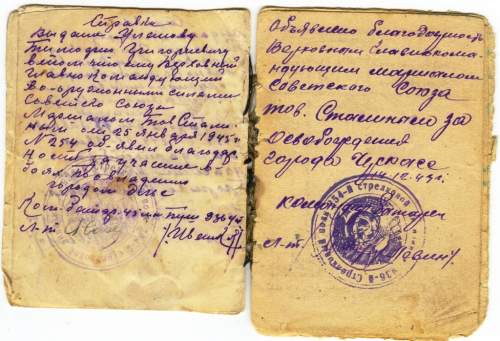 Справка
Выдана
Тимофею Григорьевичу
в том что ему Верховный
Главнокомандующий
Во-оруженными силами
Советско Союза
Маршалом Тов Стали
ным от 25 января 1945 г
N 254 об-явил благодар
Ность за участие в
боях по овладению
городом
Ком. батар.
Л-т.
Объявлено благодарность
Верховным Главнокоман-
дующим маршалом
Советского Союза
тов. Сталиным за
освобождения
города Черкасс
14.12.43 г.
батареи
Л-т.
936-й Стрелковый полк 254-й Стрелковой